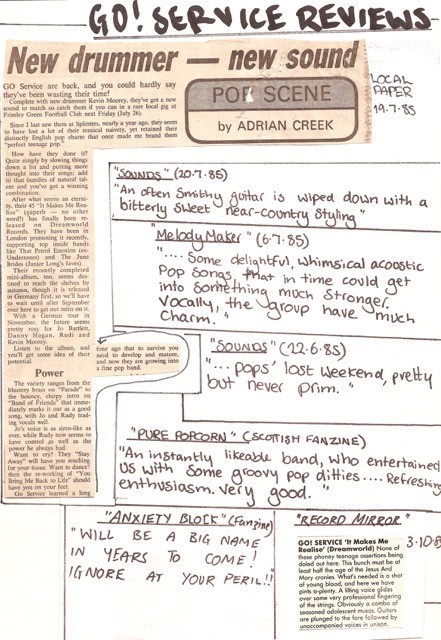 GO! SERVICE REVIEWS
New drummer — new sound
GO Service are back, and you could hardly say
they've been wasting their time!
Complete with new drummer Kevin Moorey, they've got a new
sound to match so catch them if you can in a rare local gig at
Frimley Green Football Club next Friday (July 26).
Since I last saw them at Splinters, nearly a year ago, they seem
to have lost a lot of their musical naivety, yet retained their
distinctly English pop charm that once made me brand them
"perfect teenage pop."
POP SCENE
by ADRIAN CREEK
LOCAL
PAPER
19.7.85
How have they done it?
Quite simply by slowing things
down a bit and putting more
thought into their songs; add
to that bundles of natural tal-
ent and you've got a winning
combination.
After what seems an eter-
nity, their 45 "It Makes Me Rea-
lise" (superb — no other
word!) has finally been re-
leased on Dreamworld
Records. They have been in
London promoting it recently,
supporting top inside bands
like That Petrol Emotion (ex-
Undertones) and The June
Brides (Janice Long's faves).
Their recently completed
mini-album, too, seems des-
tined to reach the shelves by
autumn, though it is released
in Germany first, so we'll have
to wait until after September
over here to get our mitts on it.
With a German tour in
November, the future seems
pretty rosy for Jo Bartlett,
Danny Hagan, Rudi and
Kevin Moorey.
Listen to the album, and
you'll get some idea of their
potential.
Power
The variety ranges from the
blustery brass on "Parade" to
the bouncy, chirpy intro on
"Band of Friends" that imme-
diately marks it out as a good
song, with Jo and Rudy trad-
ing vocals well.
Jo's voice is as siren-like as
ever, while Rudy now seems to
have control as well as the
power he always had.
Want to cry? They "Stay
Away" will have you reaching
for your tissue. Want to dance?
then the re-working of "You
Bring Me Back to Life" should
have you on your feet.
Go Service learned a long
time ago that to survive you
need to develop and mature,
and now they are growing into
a fine pop band.
"SOUNDS" (20.7.85)
"An often Smithy guitar is wiped down with a
bitterly sweet near-country styling"
"Melody Maker" (6.7.85)
".... Some delightful, whimsical acoustic
Pop Songs, that in time could get
into something much stronger.
Vocally, the group have much
Charm."
"SOUNDS" (22.6.85)
"... pops' lost weekend, pretty
but never prim."
"PURE POPCORN" (SCOTISH FANZINE)
"An instantly likeable band, who entertained
us with some groovy pop ditties.... Refreshing
enthusiasm. Very good."
"ANXIETY BLOCK" (Fanzine)
"WILL BE A BIG NAME
IN YEARS TO COME!
IGNORE AT YOUR PERIL!!"
"RECORD MIRROR"
3.10.8
GO! SERVICE 'It Makes Me
Realise' (Dreamworld) None of
these phoney teenage assertions being
doled out here. This bunch must be at
least half the age of the Jesus And
Mary cronies. What's needed is a shot
of young blood, and here we have
pints a-plenty. A lilting voice glides
over some very professional fingering
of the strings. Obviously a combo of
seasoned adolescent musos. Guitars
are plunged to the fore followed by
unaccompanied voices in unison.